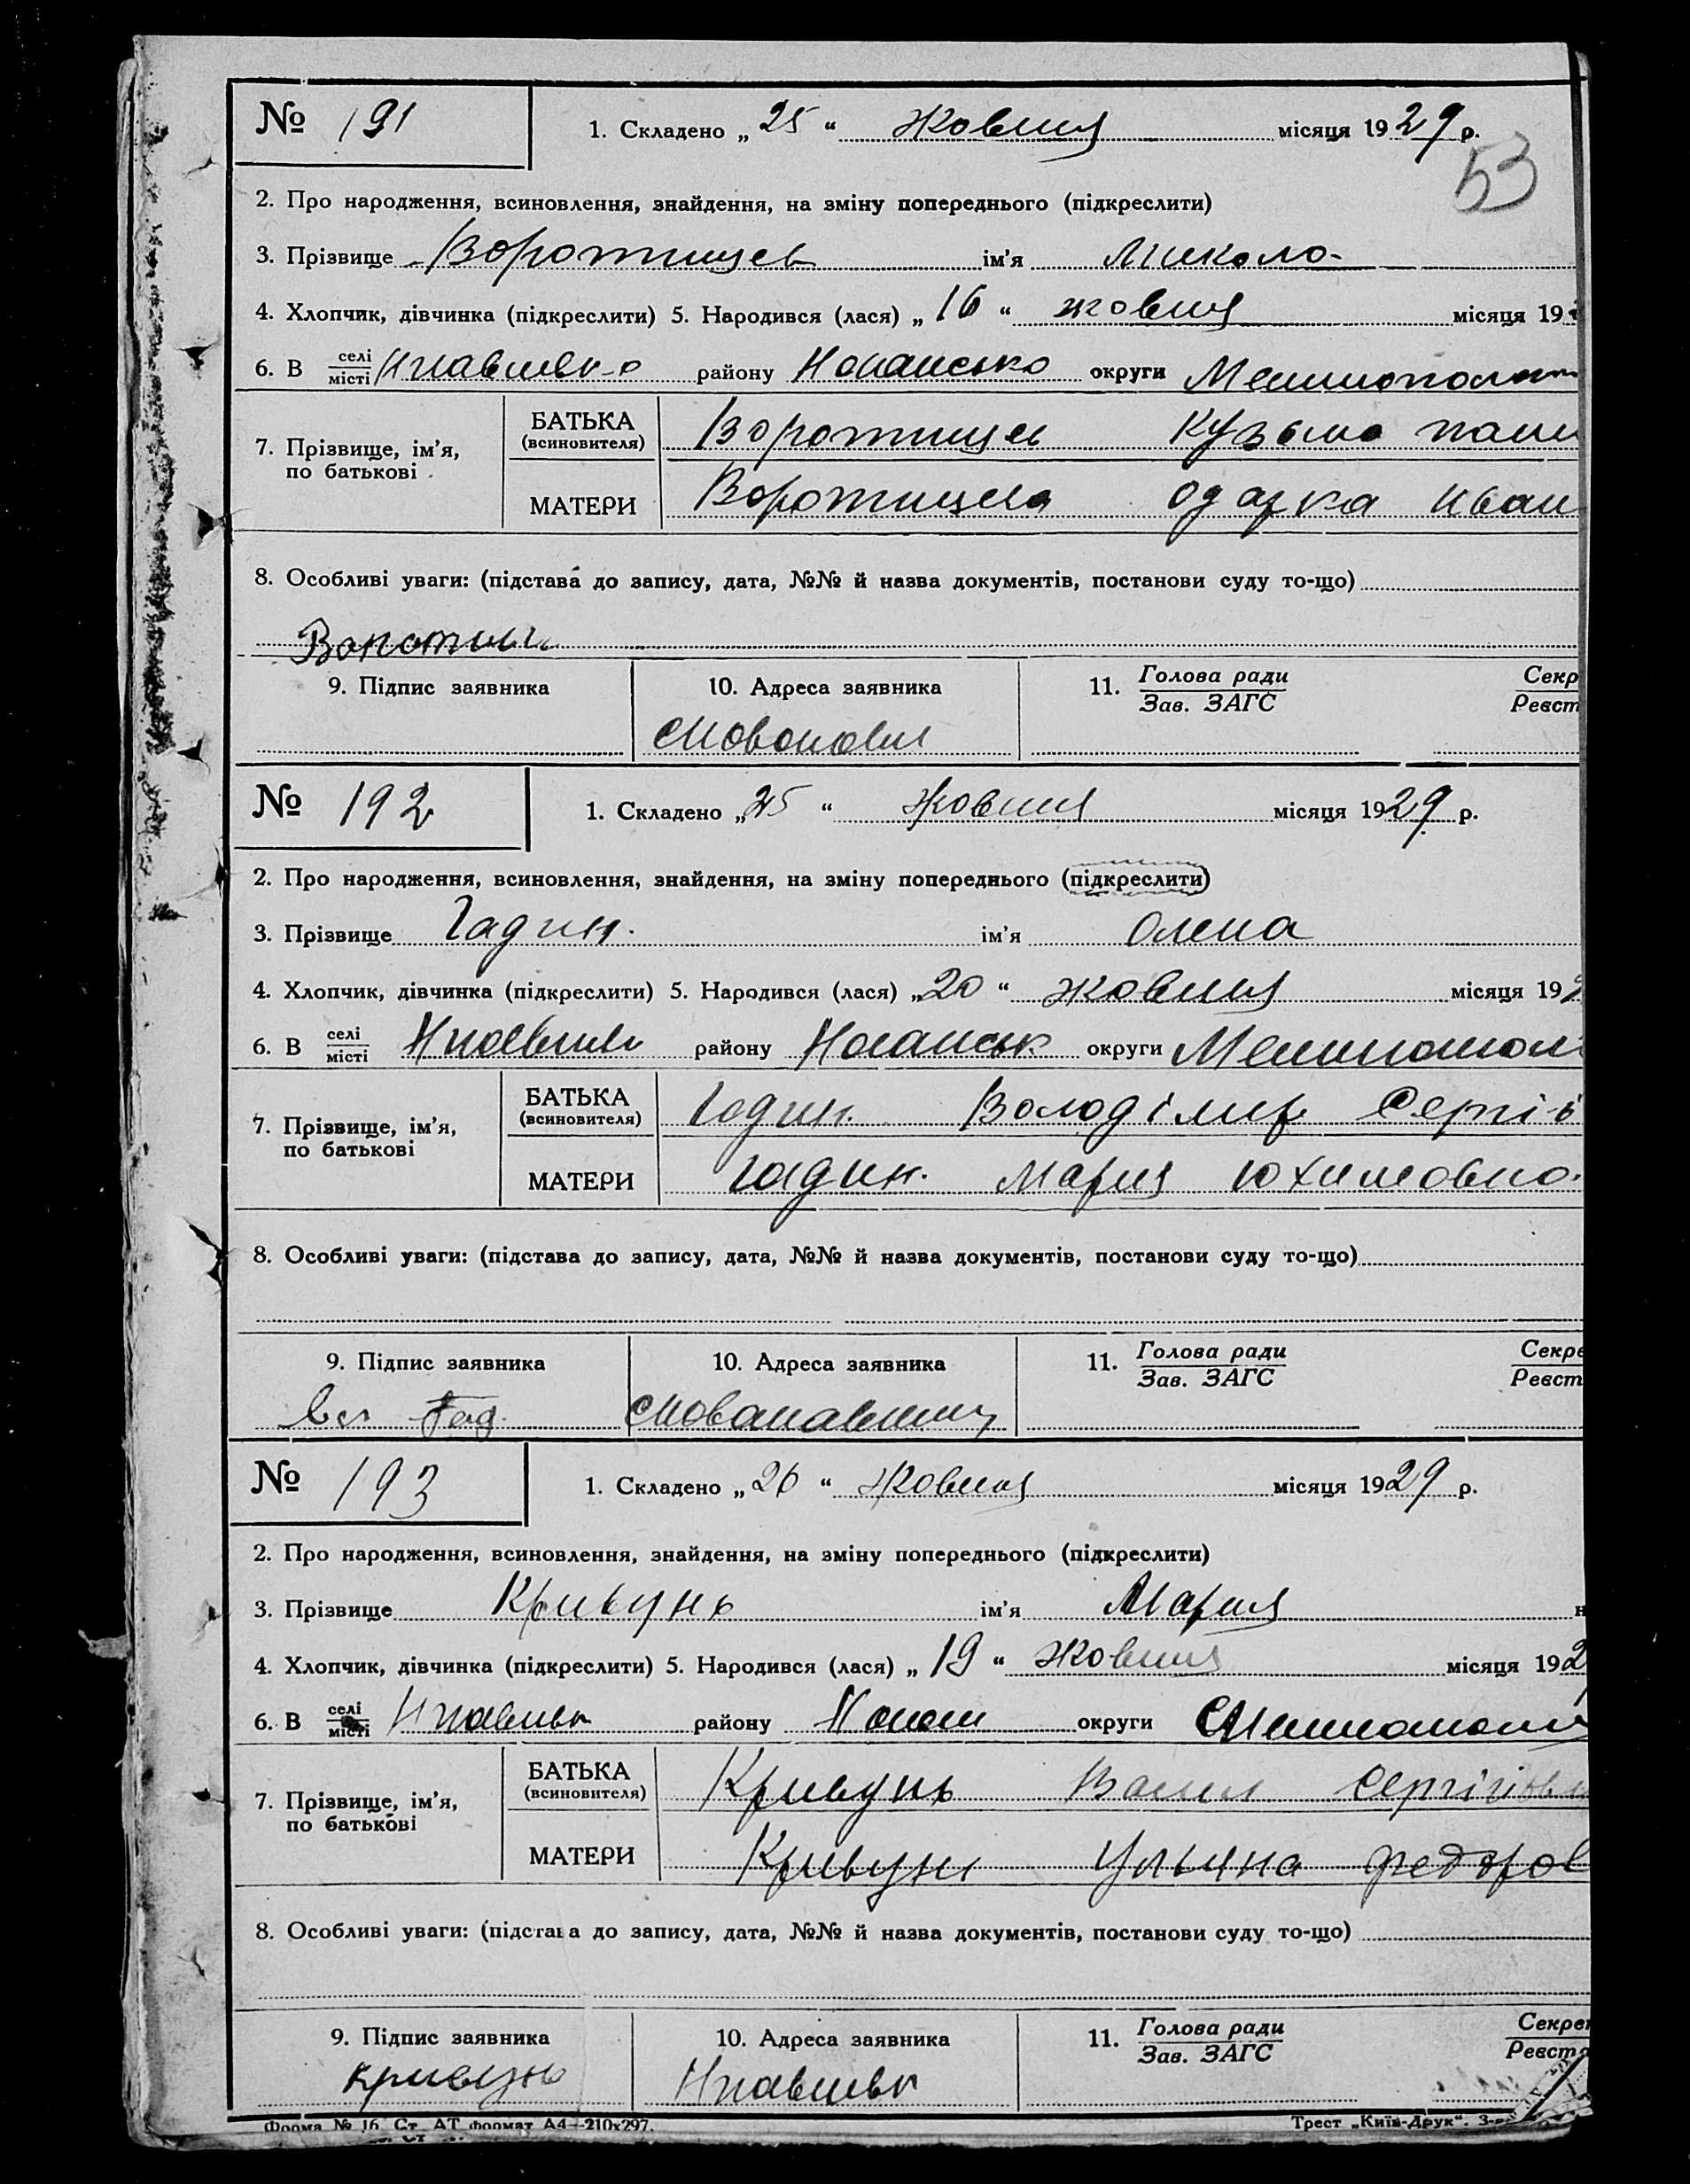 № 191
1. Складено „25“ жовтня місяця 1929 р.
53
2. Про народження, всиновлення, знайдення, на зміну попереднього (підкреслити)
3. Прізвище Воротинцев ім’я Микола
4. Хлопчик, дівчинка (підкреслити) 5. Народився (лася) „16“ жовтня місяця 19
6. В селі/місті района Ногайсько округи
7. Прізвище, ім’я, по батькові
БАТЬКА (всиновителя) Кузьма
МАТЕРИ Одарка Иван
8. Особливі уваги: (підстава до запису, дата, №№ й назва документів, постанови суду то-що)
9. Підпис заявника 10. Адреса заявника 11. Голова ради Секр
Зав. ЗАГС Реєст
№ 192
1. Складено „25“ жовтня місяця 1929 р.
2. Про народження, всиновлення, знайдення, на зміну попереднього (підкреслити)
3. Прізвище Гадин. ім’я Олена
4. Хлопчик, дівчинка (підкреслити) 5. Народився (лася) „20“ жовтня місяця 192
6. В селі/місті району Ногайськ округи
7. Прізвище, ім’я, по батькові
БАТЬКА (всиновителя) Гадин. Володімир Сергі
МАТЕРИ Гадин. Мария Юхимовна.
8. Особливі уваги: (підстава до запису, дата, №№ й назва документів, постанови суду то-що)
9. Підпис заявника 10. Адреса заявника 11. Голова ради Секре
Зав. ЗАГС Реєст
№ 193
1. Складено „26“ жовтня місяця 1929 р.
2. Про народження, всиновлення, знайдення, на зміну попереднього (підкреслити)
3. Прізвище Кривунь ім’я Мария н
4. Хлопчик, дівчинка (підкреслити) 5. Народився (лася) „19“ жовтня місяця 192
6. В селі/місті району округи
7. Прізвище, ім’я, по батькові
БАТЬКА (всиновителя) Кривунь Васил Сергійови
МАТЕРИ Кривун Ульяна Федоров
8. Особливі уваги: (підстава до запису, дата, №№ й назва документів, постанови суду то-що)
9. Підпис заявника 10. Адреса заявника 11. Голова ради Секрет
Зав. ЗАГС Реєст
Кривунь
Форма № 16. Ст. АТ формат А4—210x297. Трест „Київ-Друк“.